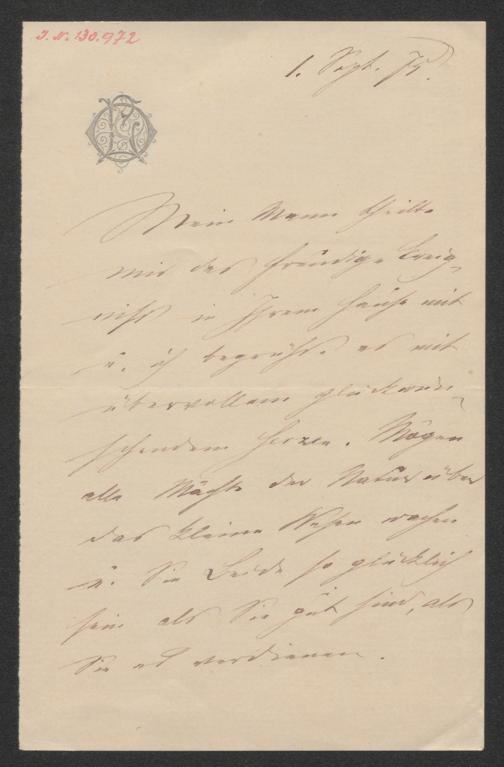 J. N. 130.972
1. Sept. 75.
Mein Mann theilte
mir das freudige Ereig-
niß in Ihrem Hause mit
u. ich begrüße es mit
übervollem glückwün-
schendem Herzen. Mögen
alle Mächte der Natur über
das kleine Wesen wachen
u. Sie Beide so glücklich
sein als Sie gut sind, als
Sie es verdienen.